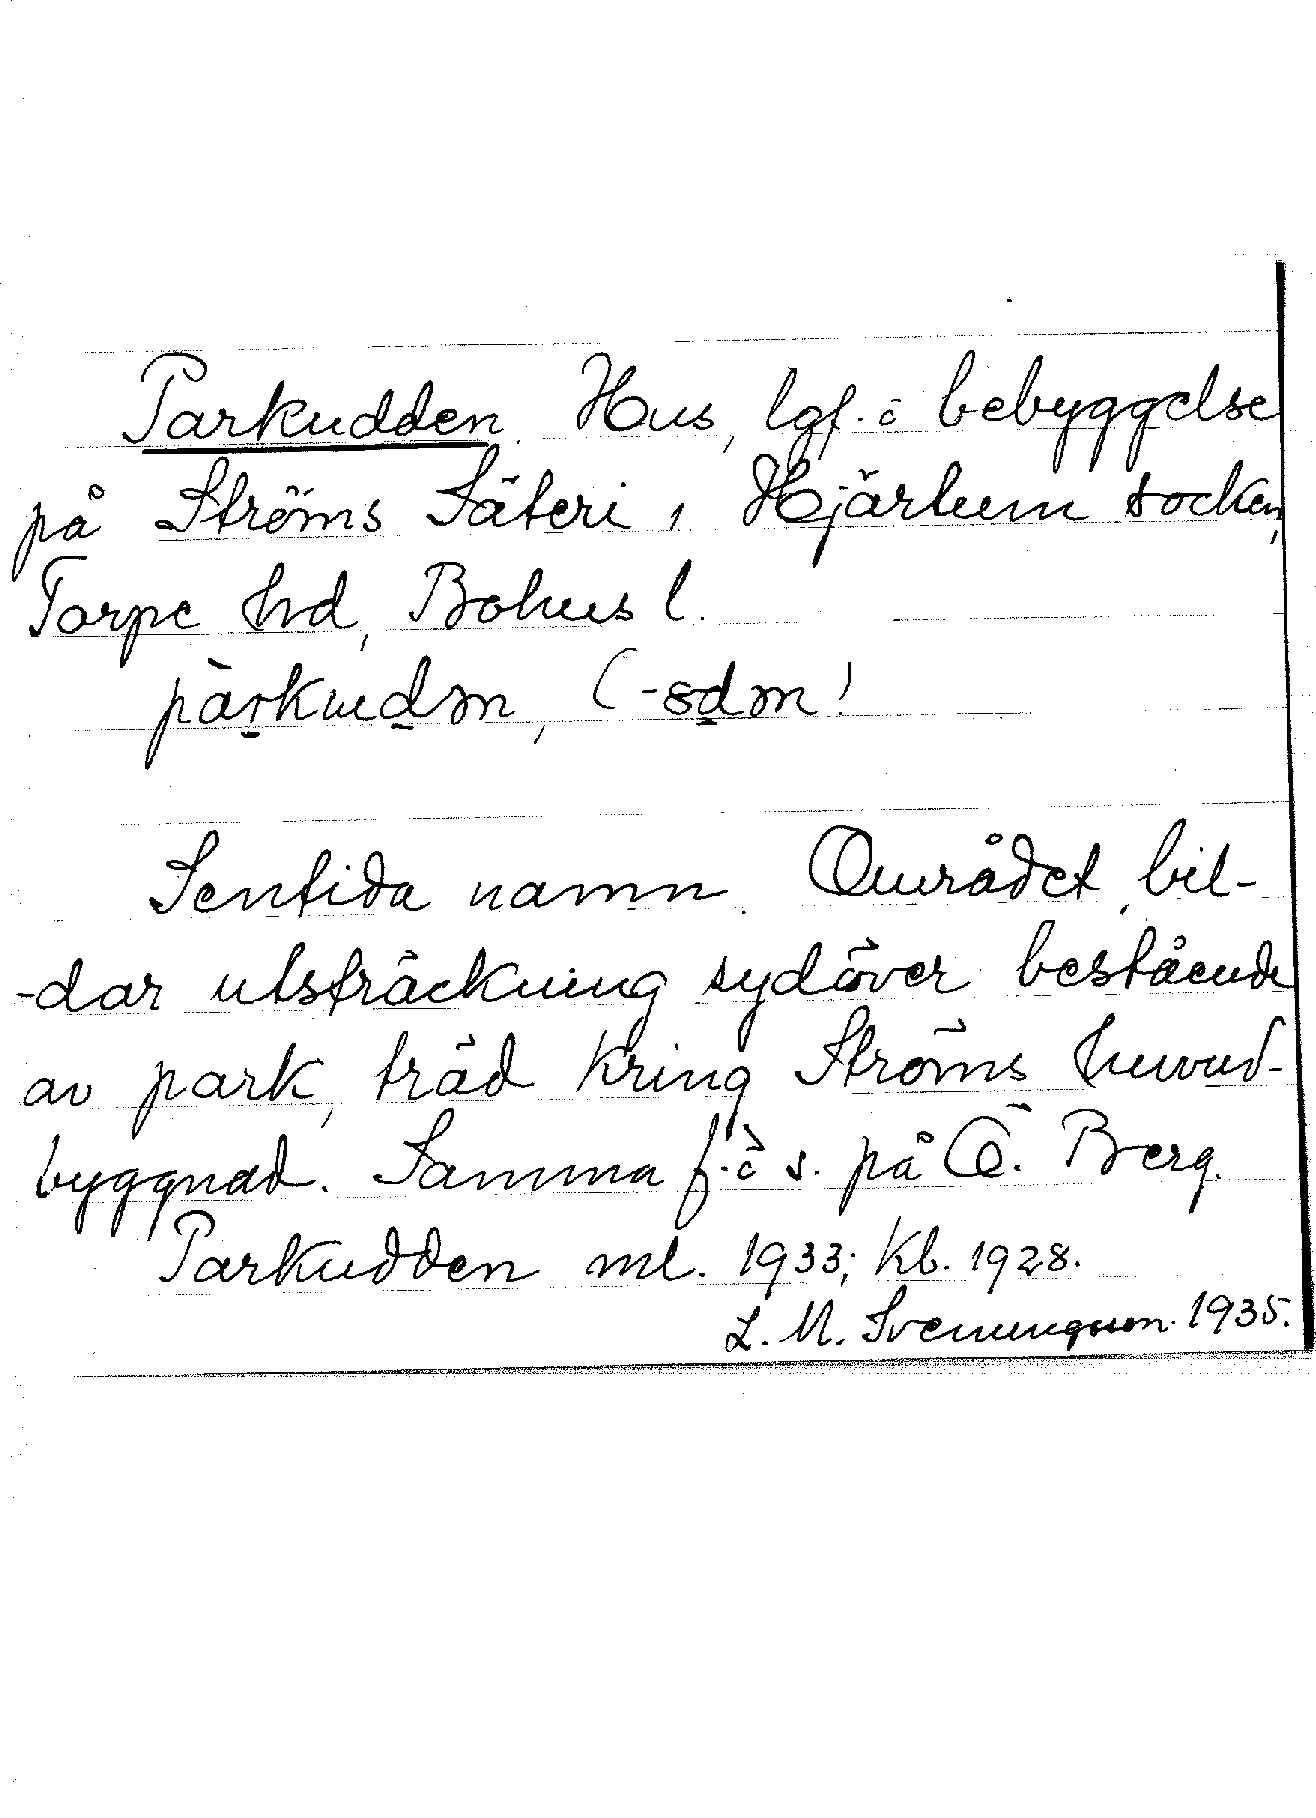 Parkudden. Hus, lgf. o bebyggelse
på Ströms Säteri, Hjärtum socken,
Torpe hd, Bohus l.
pàrkudən, (-ədən!
Sentida namn. Området bil-
-dar utsträckning sydöver bestående
av park, träd kring Ströms huvud-
byggnad. Samma f. o s. på Ö. Berg.
Parkudden ml. 1933; Kb. 1928.
L. M. Svenungsson. 1935.